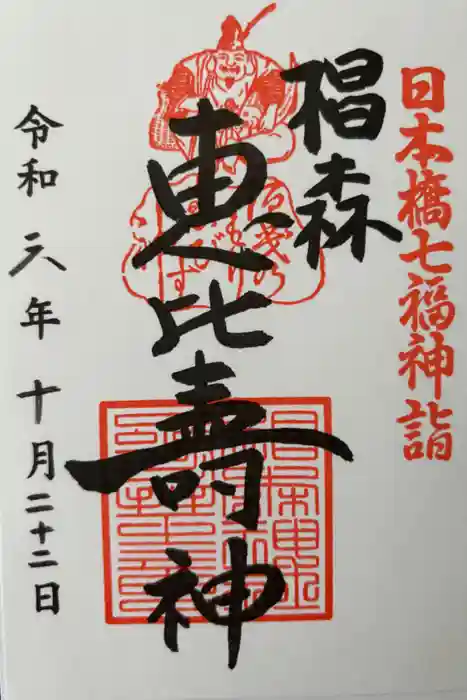 日本橋七福神詣
椙森
恵比壽神
令和六年十月二十二日